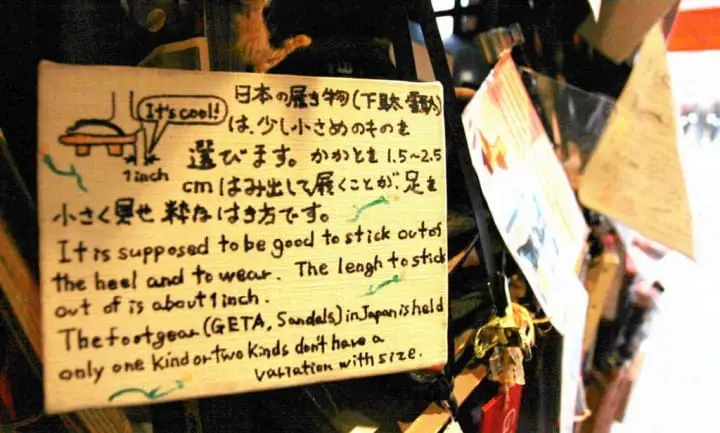 It's cool!
1inch
日本の履き物(下駄、雪駄)
は、少し小さめのものを
選びます。かかとを1.5~2.5
cmはみ出して履くことが、足を
小さく見せ 粋なはき方です。
It is supposed to be good to stick out of
the heel and to wear. The lengh to stick
out of is about 1 inch.
The footgear (GETA, Sandals) in Japan is held
only one kind or two kinds don't have a
variation with size.